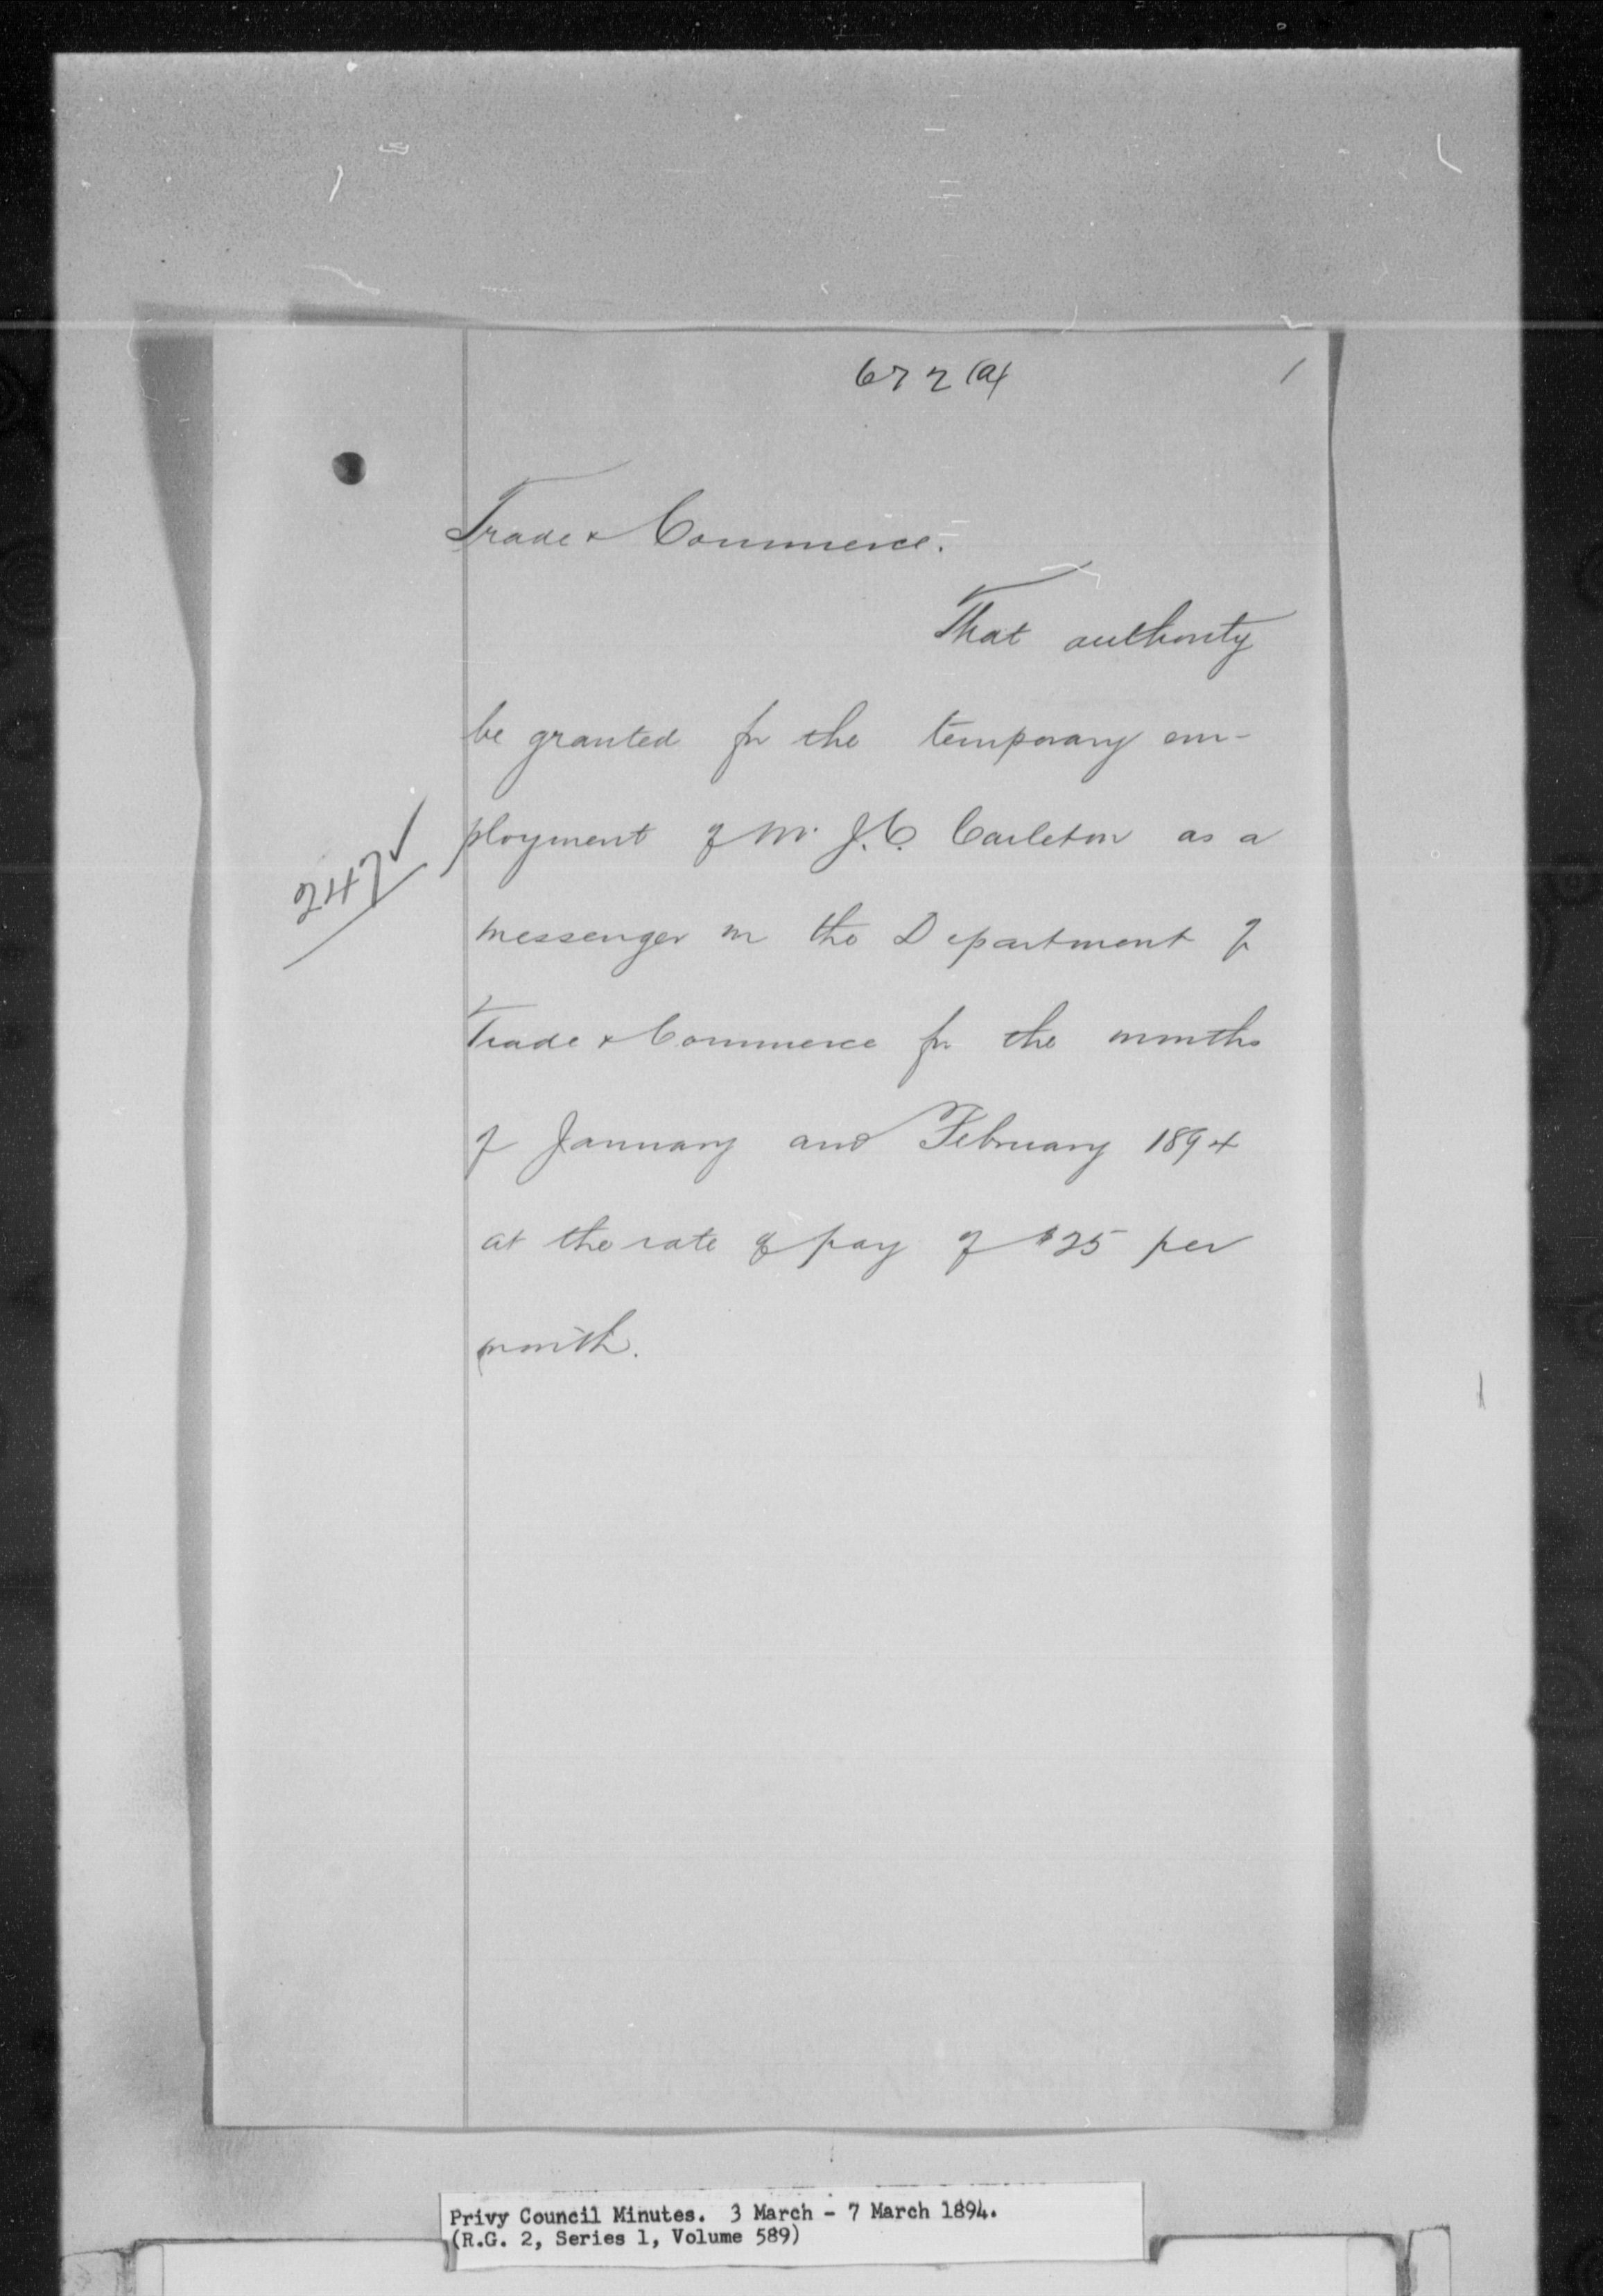 672(a)
Trade & Commerce.
That authority
be granted for the temporary em-
ployment of Mr. J. C. Carleton as a
247
messenger in the Department of
Trade & Commerce for the months
of January and February 1894
at the rate of pay of $25 per
month.
Privy Council Minutes. 3 March - 7 March 1894.
(R.G. 2, Series 1, Volume 589)